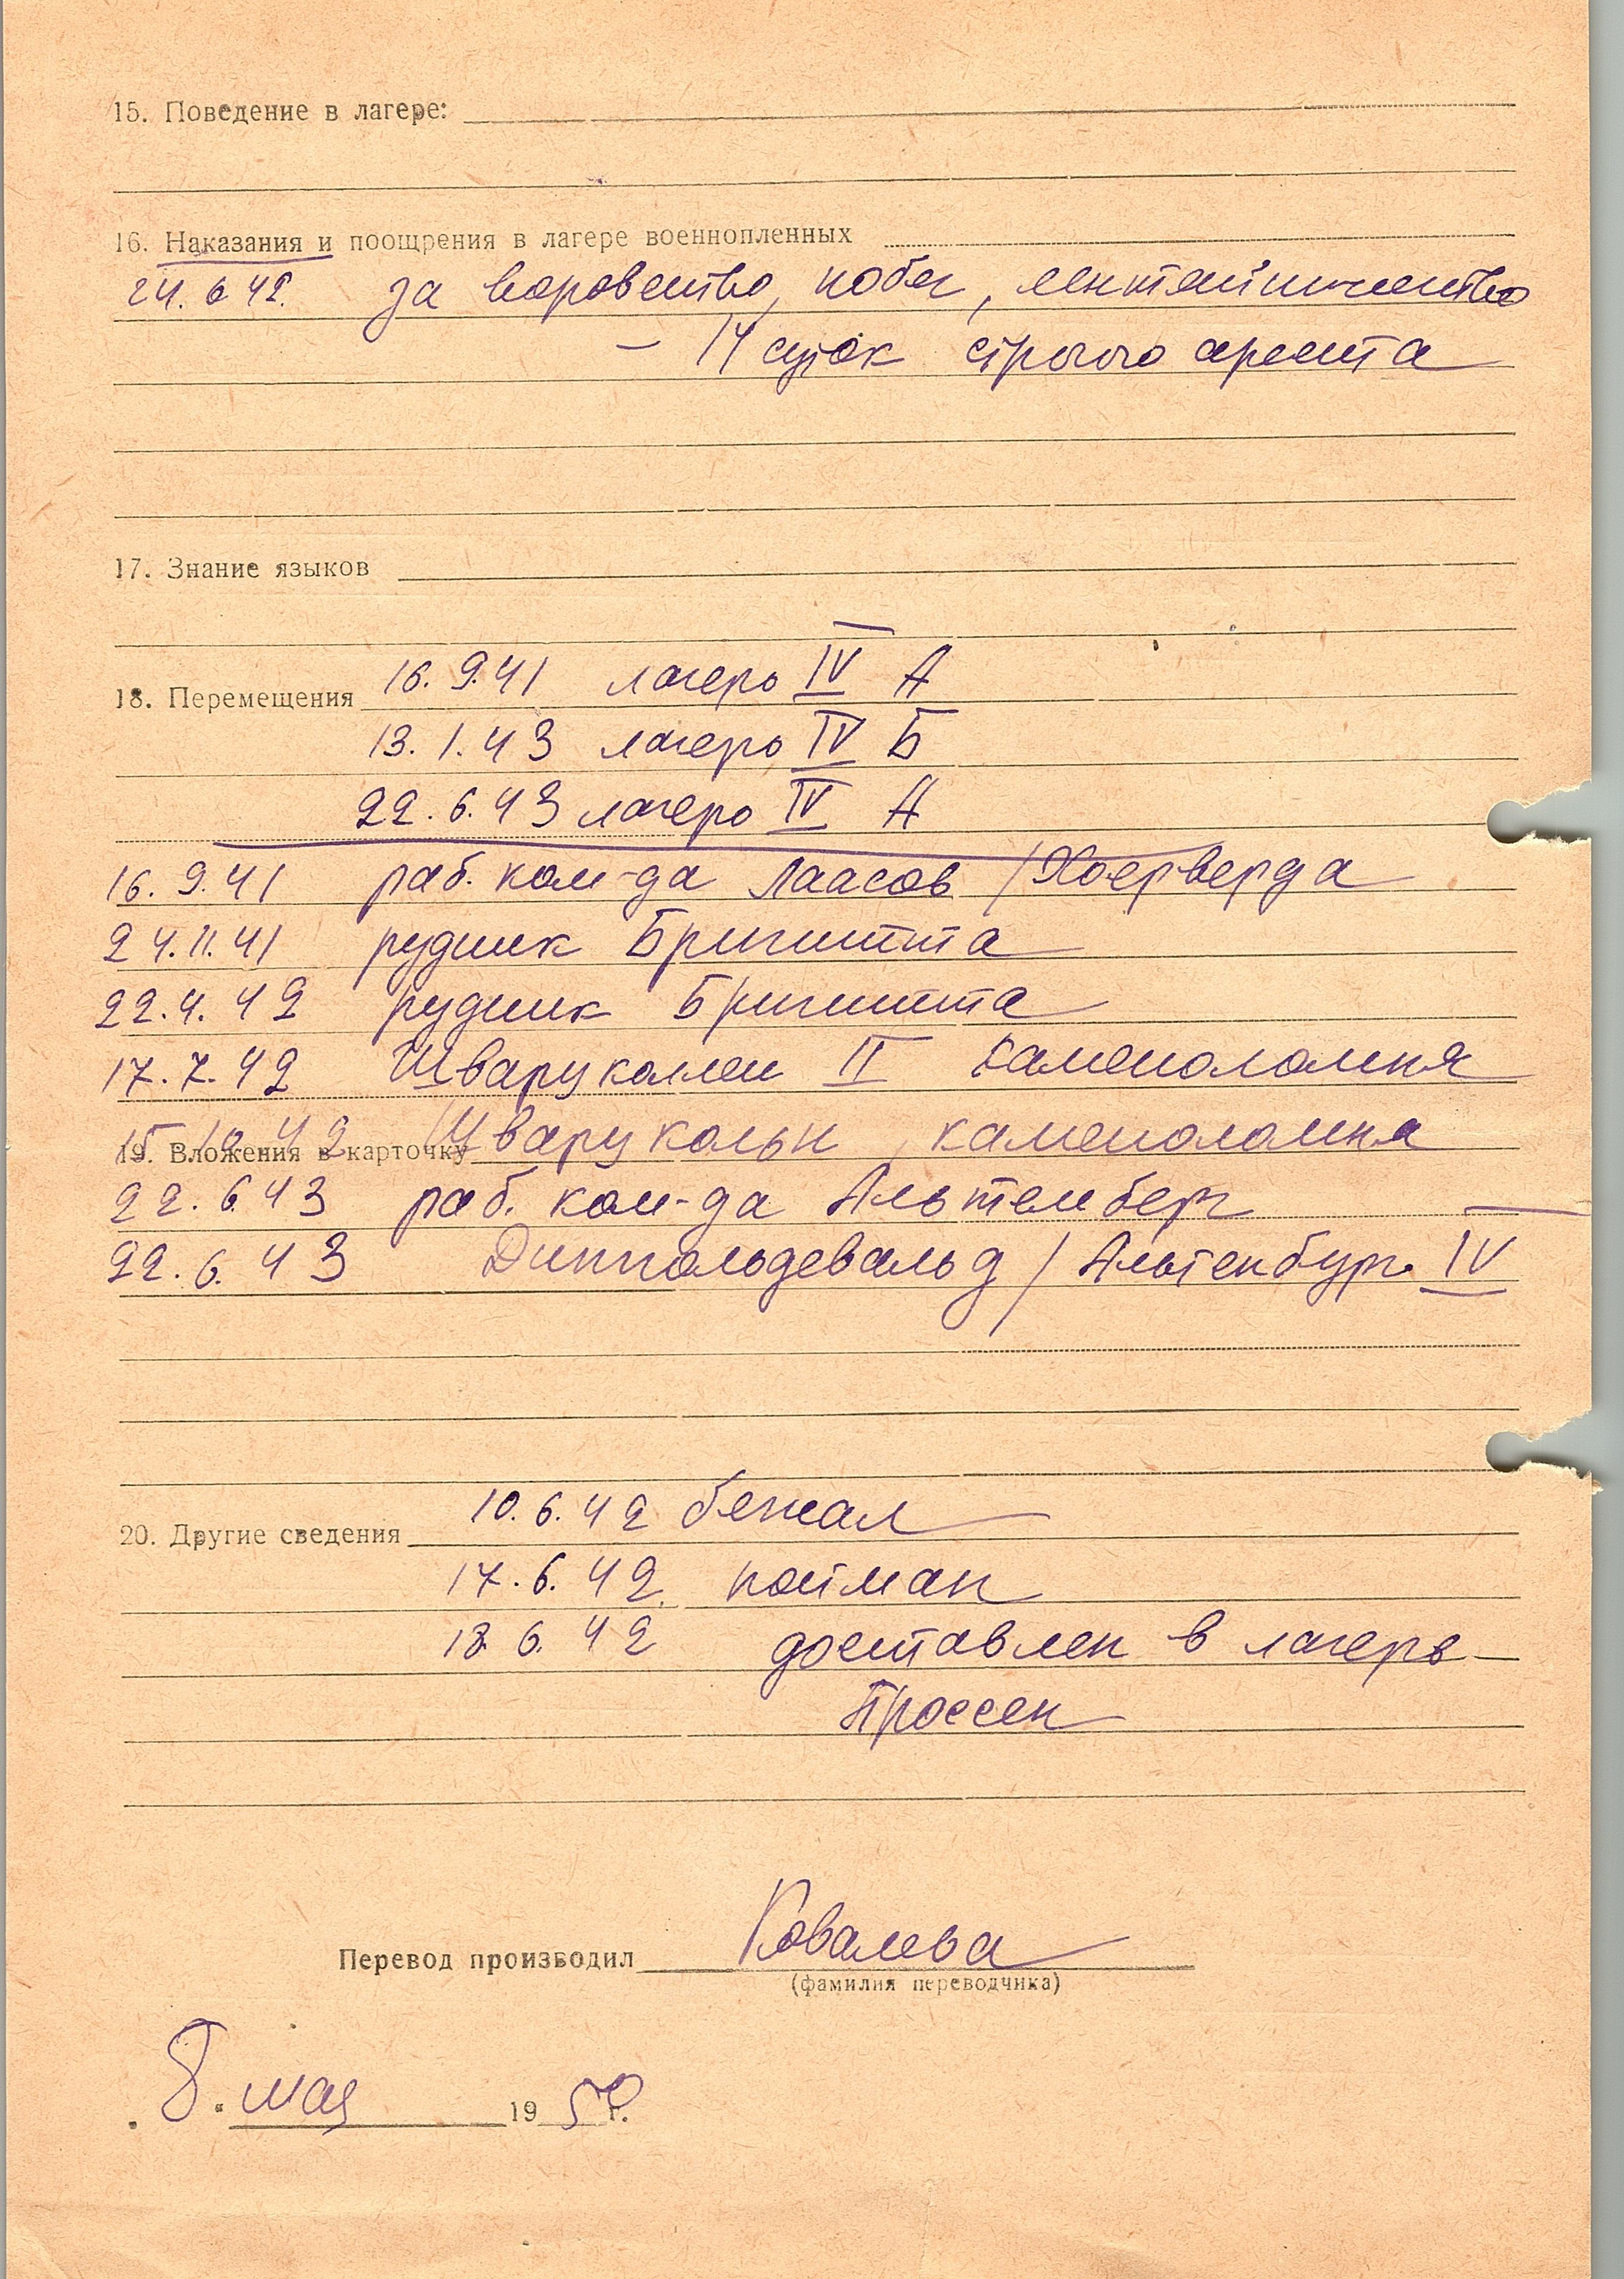 15. Поведение в лагере:
16. Наказания и поощрения в лагере военнопленных
24. 6 42. за воровство, побег, лентяйничество
– 14 суток строгого ареста
17. Знание языков
18. Перемещения 16. 9.41 лагерь IV А
13. 1. 43 лагерь IV Б
22. 6. 43 лагерь IV А
16. 9. 41 раб. ком-да Лаасов / Хоерверда
24. 11. 41 рудник Бригитта
22. 4. 42 рудник Бригитта
17. 7. 42 Шварцколлен II каменоломня
15 12 42 Шварцкольн, каменоломня
19. Вложения в карточку
22. 6. 43 раб. ком-да Альтемберг
22. 6. 43 Диппольдевальд / Альтенбург IV
20. Другие сведения 10. 6. 42 бежал
17. 6. 42. пойман
18. 6. 42 доставлен в лагерь
Проссен
Перевод производил Ковалева
(фамилия переводчика)
8. мая 1950 г.